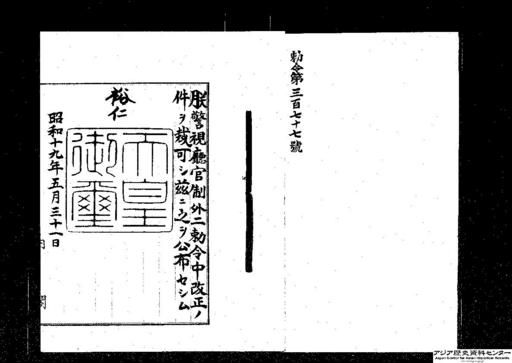 勅令第三百七十七號
朕警視廳官制外二勅令中改正ノ
件ヲ裁可シ茲ニ之ヲ公布セシム
裕仁
天皇
御璽
昭和十九年五月三十一日
アジア歴史資料センター
Japan Center for Asian Historical Records